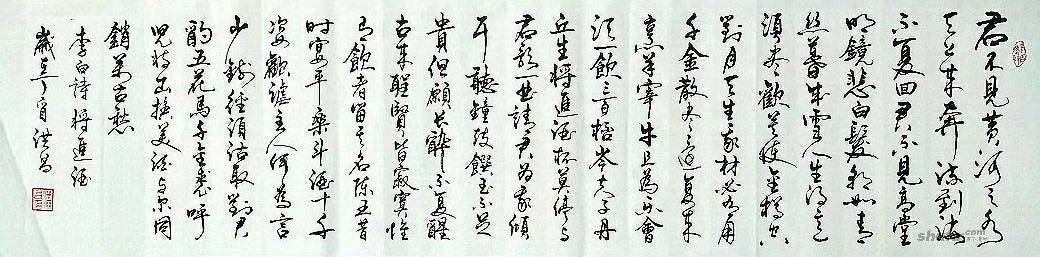 君不見黃河之水
天上來奔流到海
不復回君不見高堂
明鏡悲白髮朝如青
絲暮成雪人生得意
須盡歡莫使金樽空
對月天生我材必有用
千金散盡還復來
烹羊宰牛且為樂會
須一飲三百杯岑夫子丹
丘生將進酒杯莫停與
君歌一曲請君為我傾
耳聽鐘鼓饌玉不足
貴但願長醉不復醒
古來聖賢皆寂寞惟
有飲者留其名陳王昔
時宴平樂斗酒十千
恣歡謔主人何為言
少錢徑須沽取對君
酌五花馬千金裘呼
兒將出換美酒與爾同
銷萬古愁
李白詩將進酒
歲